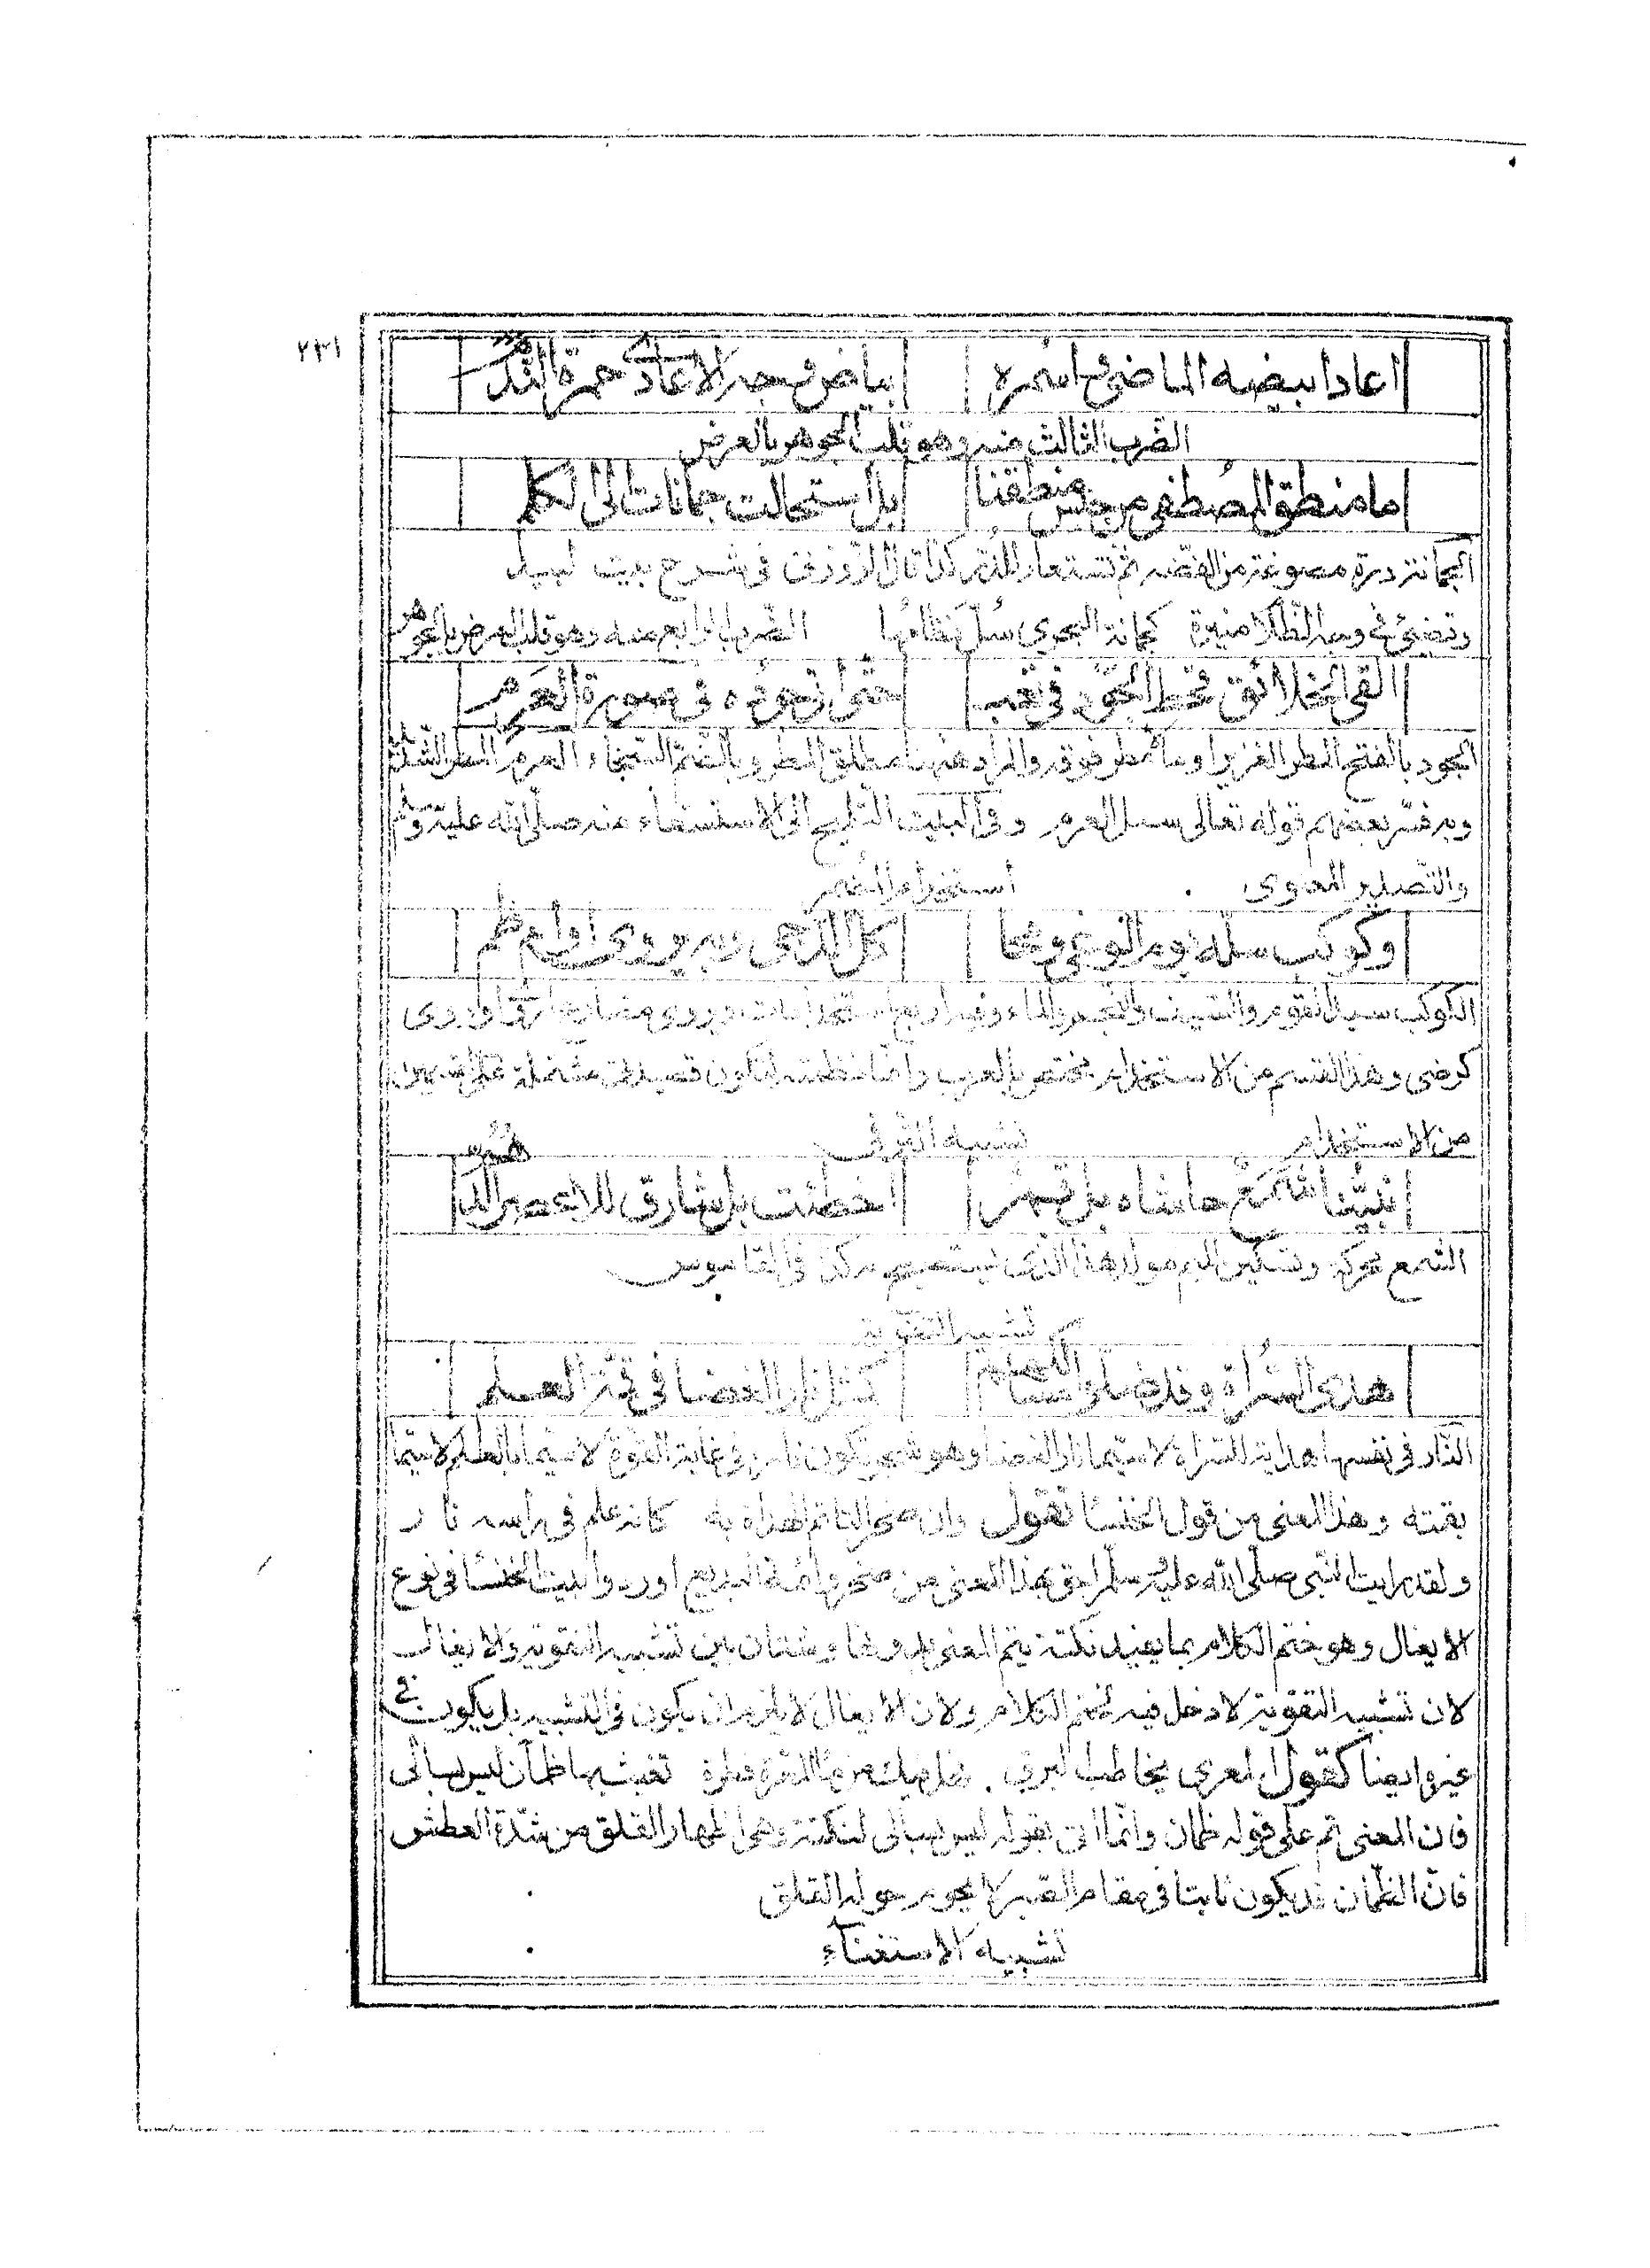 ٢٣١
اعاد ابيضه الماضي واسمره بياض وجه الاعادي حمرة
الضرب الثالث منه وهو قلب الجوهر بالعرض
ما منطق المصطفى من جنس منطقنا بل استحالت جمانات الى الكلم
الجمانة درة مصوغة من الفضة ثم تستعار للدرة كذا قال الزوزني في شرح بيت لبيد
وتضيئ في وجه الظلام منيرة كجمانة البحري سل نظامها الضرب الرابع منه وهو قلب العرض بالجوهر
القى الخلائق قحط الجود في تعب حتى في صورة العرم
الجود بالفتح المطر الغزير او ما لا مطر فوقه والمراد ههنا مطلق المطر وبالضم السخاء العرم المطر الشديد
وبه فسر بعضهم قوله تعالى سيل العرم وفي البيت التلميح الى الاستسقاء منه صلى الله عليه وسلم
والتصدير المعنوي استخدام المضمر
وكوكب سله يوم الوغى ومحا كل الدجى وبه يروى
الكوكب سيد القوم والسيف والنجم والماء وفيه اربع استخدامات ويروى مضارع
كرضي وهذا القسم من الاستخدام مختص بالعرب وانما نظمته لتكون قصيدتي مشتملة على القسمين
من الاستخدام تشبيه الترقي
الشمع حاشاه بل قمر اخطئت بل شارق
الشمع محركة وتسكين الميم مولد هذا الذي يستصبح به كذا في القاموس
تشبيه التقوية
هدى السراة وقد ضلوا كمثل نار الغضا في قمة العلم
النار في نفسها هداية للسراة لا سيما نار الغضا وهو شجر تكون ناره في غاية القوة لا سيما بالعلم لا سيما
بقمته وهذا المعنى من قول الخنسا تقول وان صخرا لتاتم الهداة به كانه علم في راسه نار
ولقد رايت النبي صلى الله عليه وسلم احق بهذا المعنى من صخر وائمة البديع اوردوا بيت الخنسا في نوع
الايغال وهو ختم الكلام بما يفيد نكتة يتم المعنى بدونها وشتان بين تشبيه التقوية والايغال
لان تشبيه التقوية لا دخل فيه لختم الكلام ولان الايغال لا يلزم ان يكون في التشبيه بل يكون في
غيره ايضا كقول المعري يخاطب البرق فهل فيك من ماء المعرة قطرة تغيث بها ظمآن ليس بسالي
فان المعنى تم على قوله ظمان وانما اتى بقوله ليس بسالى لنكتة وهى اظهار القلق من شدة العطش
فان الظمان قد يكون ثابتا في مقام الصبر لا يحوم حوله القلق
تشبيه الاستغناء